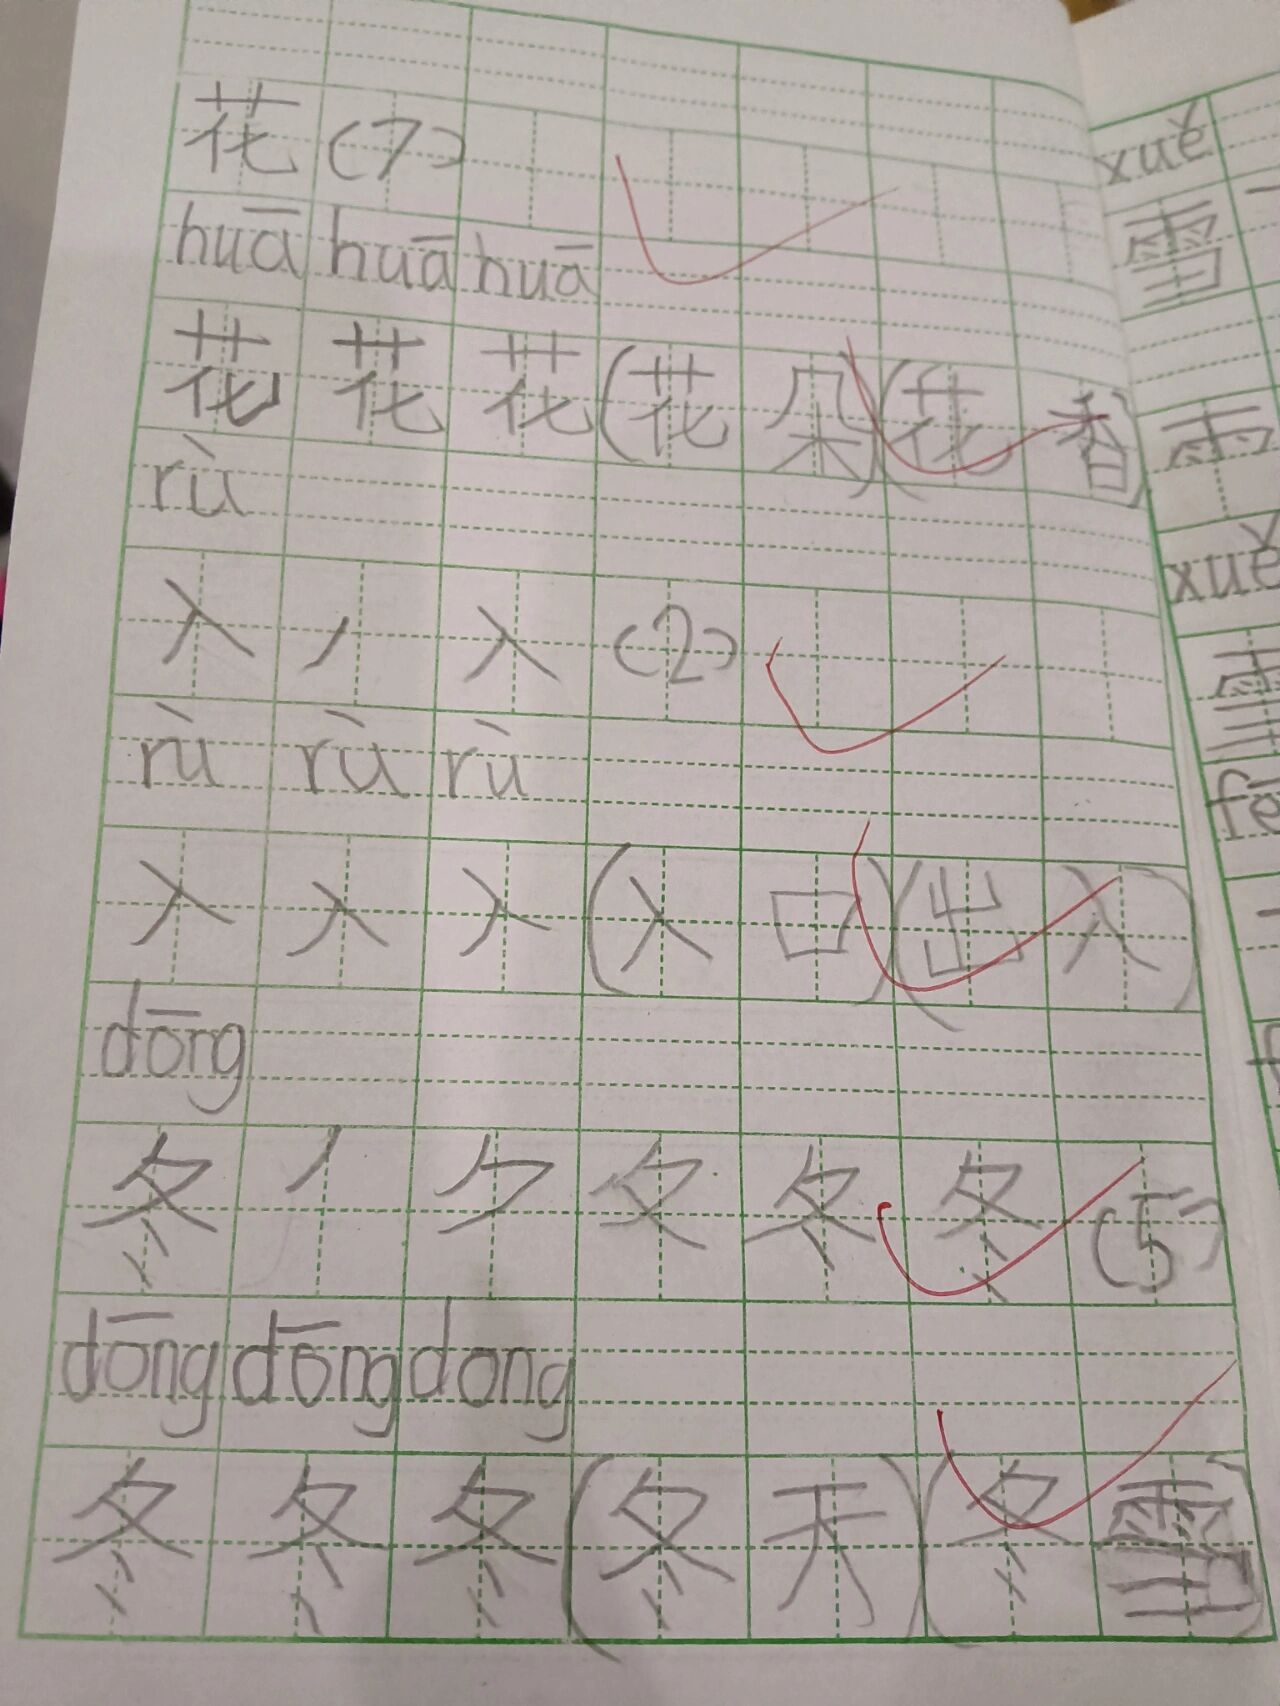 花 (7)
huā huā huā
花 花 花 (花 朵) (花 香)
rù
入 丿 入 (2)
rù rù rù
入 入 入 (入 口) (出 入)
dōng
冬 丿 ク 夂 冬 冬 (5)
dōng dōng dong
冬 冬 冬 (冬 天) (冬 雪)
xuě
雪
雨
xuě
雪